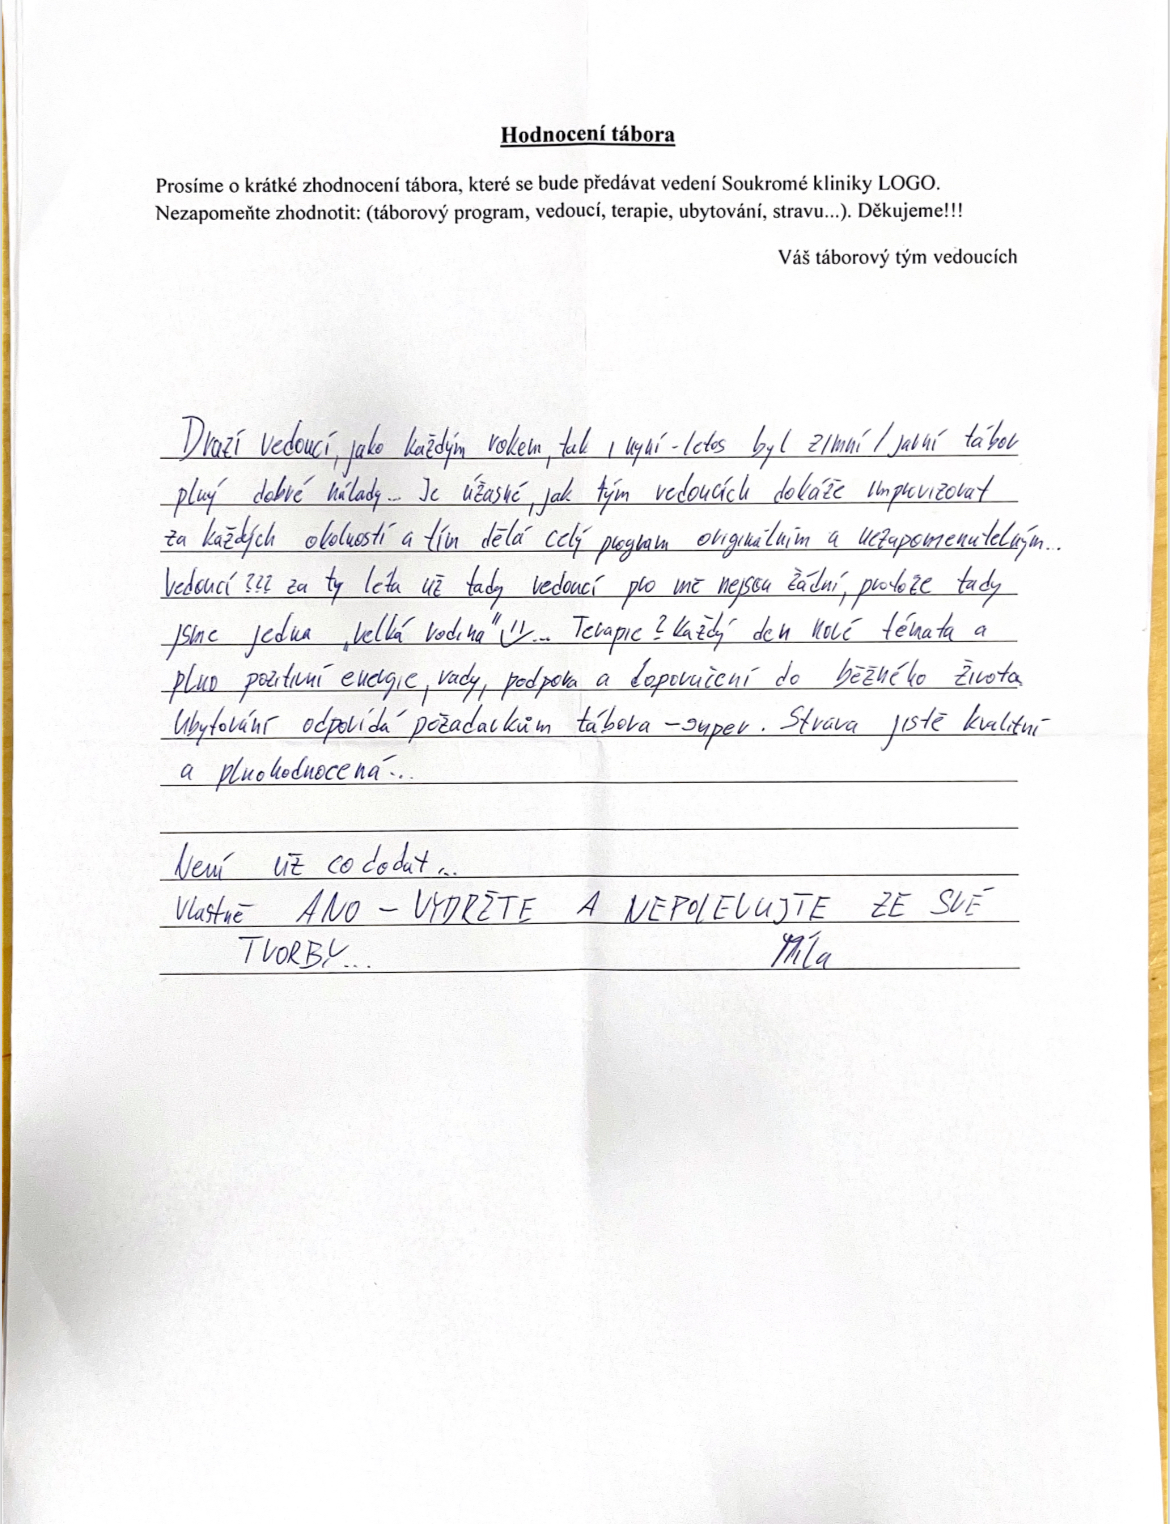 Hodnocení tábora
Prosíme o krátké zhodnocení tábora, které se bude předávat vedení Soukromé kliniky LOGO.
Nezapomeňte zhodnotit: (táborový program, vedoucí, terapie, ubytování, stravu...). Děkujeme!!!
Váš táborový tým vedoucích
Drazí vedoucí, jako každým rokem, tak i nyní - letos byl zimní / jarní tábor
plný dobré nálady... Je úžasné, jak tým vedoucích dokáže improvizovat
za každých okolností a tím dělá celý program originálním a nezapomenutelným...
Vedoucí ??? za ty léta už tady vedoucí pro mě nejsou žádní, protože tady
jsme jedna „velká rodina" ... Terapie? Každý den nové témata a
plno pozitivní energie, rady, podpora a doporučení do běžného života.
Ubytování odpovídá požadavkům tábora - super. Strava jistě kvalitní
a plnohodnocená...
Není už co dodat...
Vlastně ANO - VYDRŽTE A NEPOLEVUJTE ZE SVÉ
TVORBY... Míla